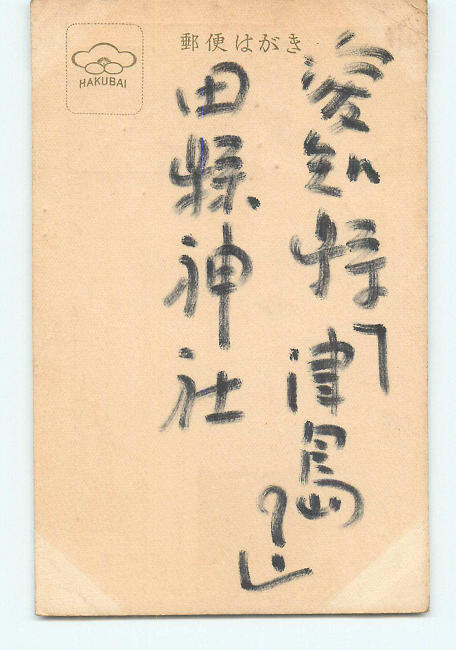 郵便はがき
HAKUBAI
愛知
「津島?」
田縣神社